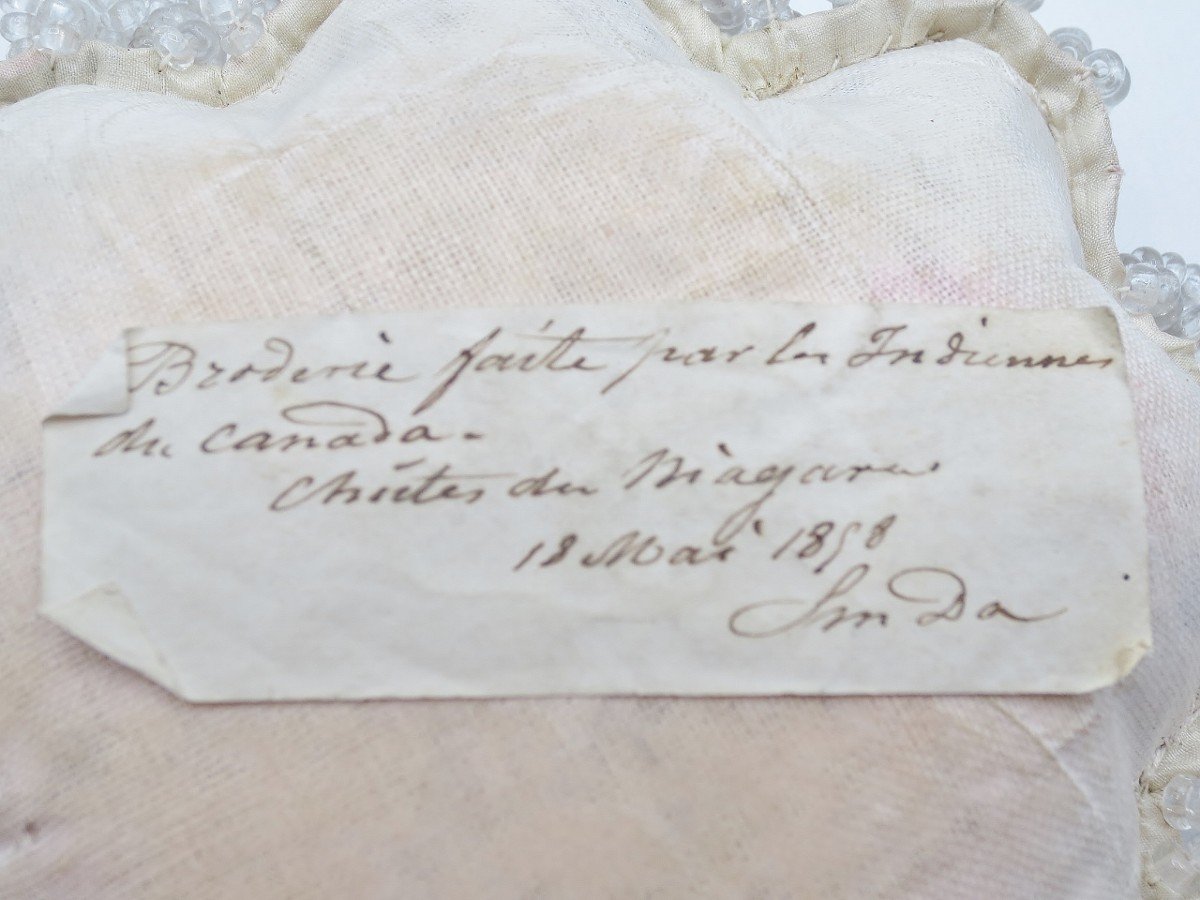 Broderie faite par les Indiennes
du Canada.
Chûtes du Niagara.
18 Mai 1858